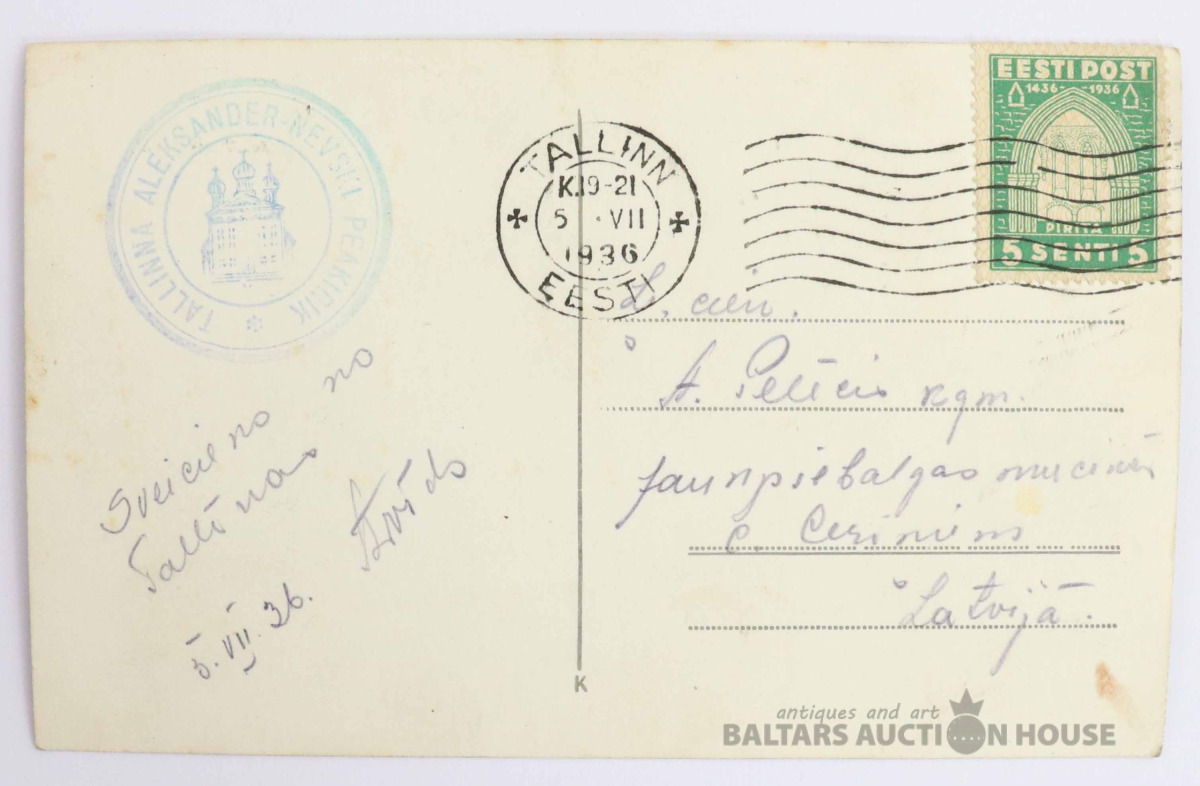 TALLINNA ALEKSANDER-NEVSKI PEAKIRIK
Sveiciens no
Arvīds
5. VII. 36.
TALLINN
K.19-21
5 . VII
1936
EESTI
EESTI POST
1436 - 1936
PIRITA
5 SENTI 5
L. cien.
A. kgm.
Jaunpiebalgas
c.
Latvijā.
K
antiques and art
BALTARS AUCTION HOUSE